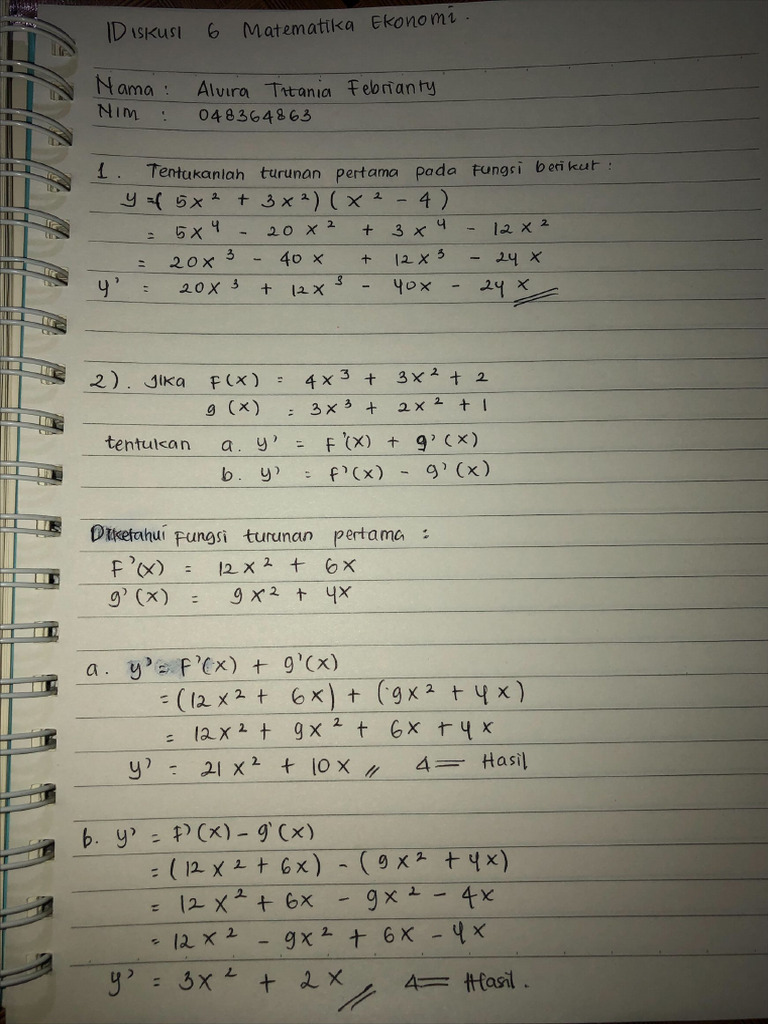 Diskusi 6 Matematika Ekonomi.
Nama : Alvira Titania Febrianty
Nim : 048364863
1. Tentukanlah turunan pertama pada fungsi berikut :
y = ( 5x² + 3x²) ( x² - 4 )
= 5x⁴ - 20x² + 3x⁴ - 12x²
= 20x³ - 40x + 12x³ - 24x
y' = 20x³ + 12x³ - 40x - 24x
2). Jika F(x) = 4x³ + 3x² + 2
g(x) = 3x³ + 2x² + 1
tentukan a. y' = F'(x) + g'(x)
b. y' = F'(x) - g'(x)
Diketahui fungsi turunan pertama :
F'(x) = 12x² + 6x
g'(x) = 9x² + 4x
a. y' = F'(x) + g'(x)
= (12x² + 6x) + (9x² + 4x)
= 12x² + 9x² + 6x + 4x
y' = 21x² + 10x // 4= Hasil
b. y' = F'(x) - g'(x)
= (12x² + 6x) - (9x² + 4x)
= 12x² + 6x - 9x² - 4x
= 12x² - 9x² + 6x - 4x
y' = 3x² + 2x // 4= Hasil.